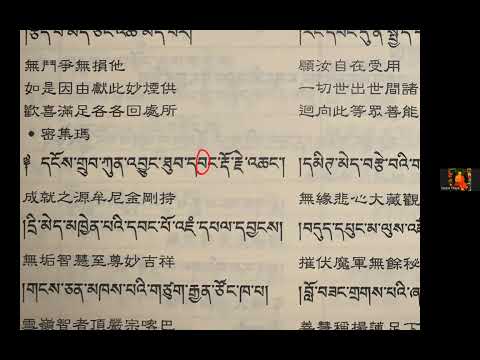 無鬥爭無損他
如是因由獻此妙煙供
歡喜滿足各各回處所
• 密集瑪
༈ དངོས་གྲུབ་ཀུན་འབྱུང་ཐུབ་དབང་རྡོ་རྗེ་འཆང་།
成就之源牟尼金剛持
།དྲི་མེད་མཁྱེན་པའི་དབང་པོ་འཇཾ་དཔལ་དབྱངས།
無垢智慧至尊妙吉祥
།གངས་ཅན་མཁས་པའི་གཙུག་རྒྱན་ཙོང་ཁ་པ།
雪嶺智者頂嚴宗喀巴
願汝自在受用
一切世出世間諸
迴向此等眾善能
།དམིཊ་མེད་བརྩེ་བའི་
無緣悲心大藏觀
།བདུད་དཔུང་མ་ལུས་
摧伏魔軍無餘秘
།བློ་བཟང་གྲགས་པའི་
善慧稱揚蓮足下